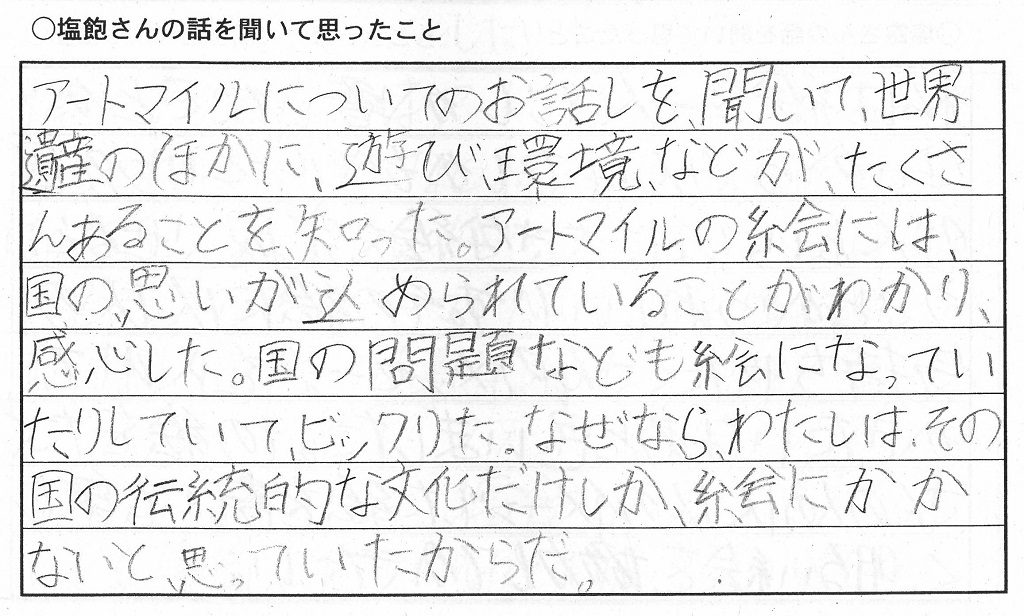 ○塩飽さんの話を聞いて思ったこと
アートマイルについてのお話しを、聞いて、世界
遺産のほかに、遊び、環境、などが、たくさ
んあることを、知った。アートマイルの絵会には、
国の思いが込められていることがわかり、
感心した。国の問題なども絵になってい
たりしていて、ビックリた。なぜなら、わたしは、その
国の伝統的な文化だけしか、絵にかか
ないと、思っていたからだ。